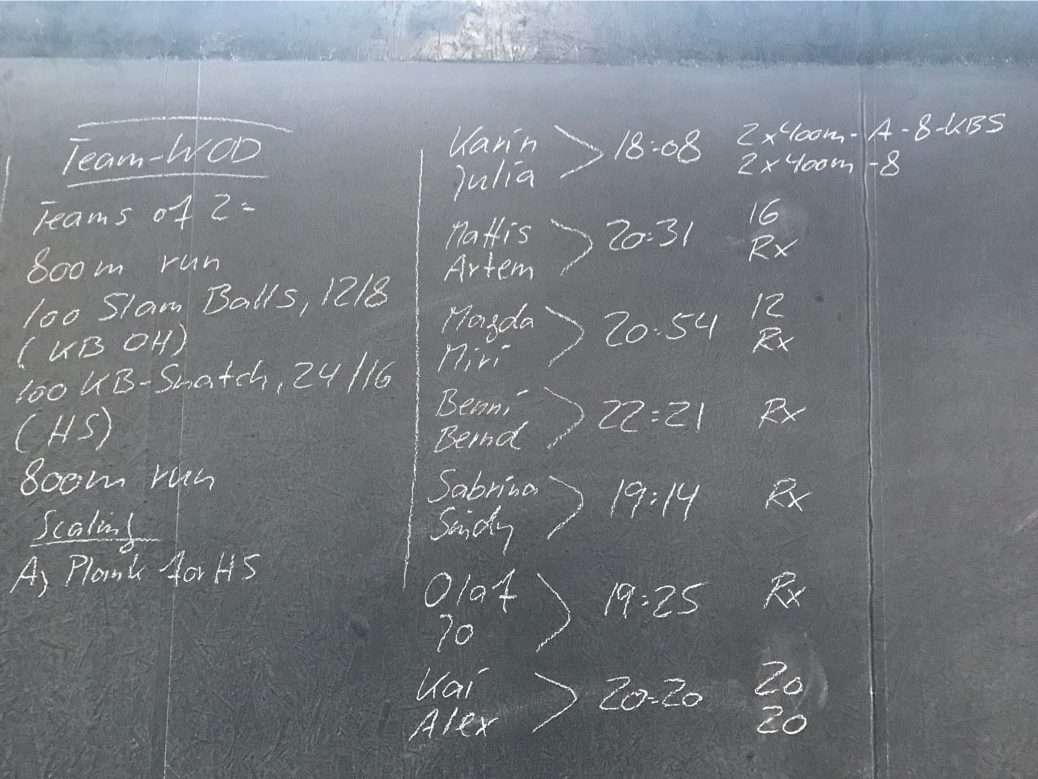 Team-WOD
Teams of 2=
800m run
100 Slam Balls, 12/8
(KB OH)
100 KB-Snatch, 24/16
(HS)
800m run
Scaling
A) Plank for HS
Karin
Julia
18:08
2x400m-A-8-KBS
2x400m-8
Mattis
Artem
20:31
16
Rx
Magda
Miri
20:54
12
Rx
Benni
Bernd
22:21
Rx
Sabrina
Sindy
19:14
Rx
Olaf
Jo
19:25
Rx
Kai
Alex
20:20
20
20